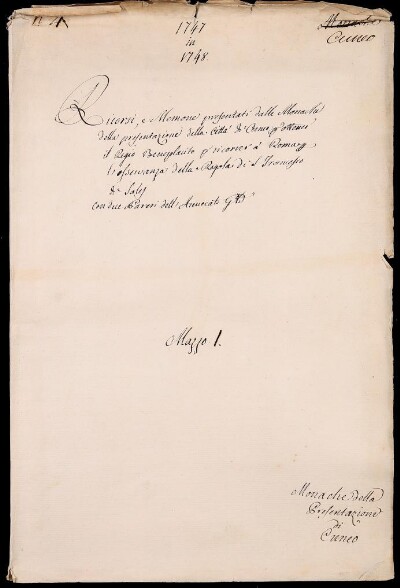 N. 4
Cuneo
1747
in
1748
Ricorsi, e Memorie presentati dalle Monache
della presentazione della Città di Cuneo p. ottener
il Regio Beneplacito p. ricorrer à Roma
l'osservanza della Regola di S. Francesco
di Sales
con due Pareri dell' Avvocato
Mazzo 1.
Monache della
Presentazione
di
Cuneo